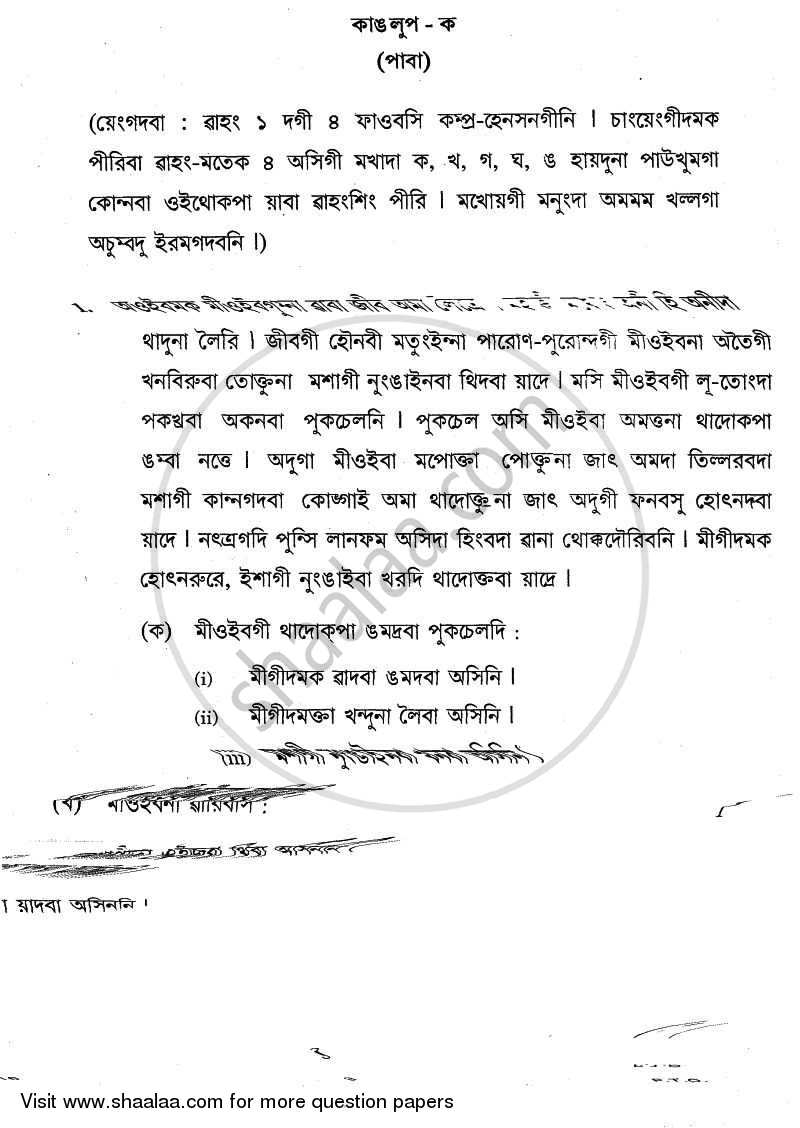 কাঙলুপ - ক
(পাবা)
(য়েংগদবা : ৱাহং ১ দগী ৪ ফাওবসি কম্প্র-হেনসনগীনি । চাংয়েংগীদমক
পীরিবা ৱাহং-মতেক ৪ অসিগী মখাদা ক, খ, গ, ঘ, ঙ হায়দুনা পাউখুমগা
কোন্নবা ওইথোকপা য়াবা ৱাহংশিং পীরি । মখোয়গী মনুংদা অমমম খল্লগা
অচুম্বদু ইরমগদবনি ।)
1. জীব অমা
থাদুনা লৈরি । জীবগী হৌনবী মতুংইন্না পারোণ-পুরোন্দগী মীওইবনা অতৈগী
খনবিরুবা তোক্তুনা মশাগী নুংঙাইনবা থিদবা য়াদে । মসি মীওইবগী লূ-তোংদা
পকখবা অকনবা পুকচেলনি । পুকচেল অসি মীওইবা অমত্তনা থাদোকপা
ঙম্বা নত্তে । অদুগা মীওইবা মপোক্তা পোক্তুনা জাৎ অমদা তিল্লরবদা
মশাগী কান্নগদবা কোঙ্গাই অমা থাদোক্তুনা জাৎ অদুগী ফনবসু হোৎনদবা
য়াদে । নৎত্রগদি পুন্সি লানফম অসিদা হিংবদা ৱানা থোক্কদৌরিবনি । মীগীদমক
হোৎনরুরে, ইশাগী নুংঙাইবা খরদি থাদোক্তবা য়াদ্রে ।
(ক) মীওইবগী থাদোক্‌পা ঙমদ্রবা পুকচেলদি :
(i) মীগীদমক ৱাদবা ঙমদবা অসিনি ।
(ii) মীগীদমক্তা খন্দুনা লৈবা অসিনি ।
(iii)
য়াদবা অসিননি ।
3
P.T.O.
shaalaa.com
Visit www.shaalaa.com for more question papers